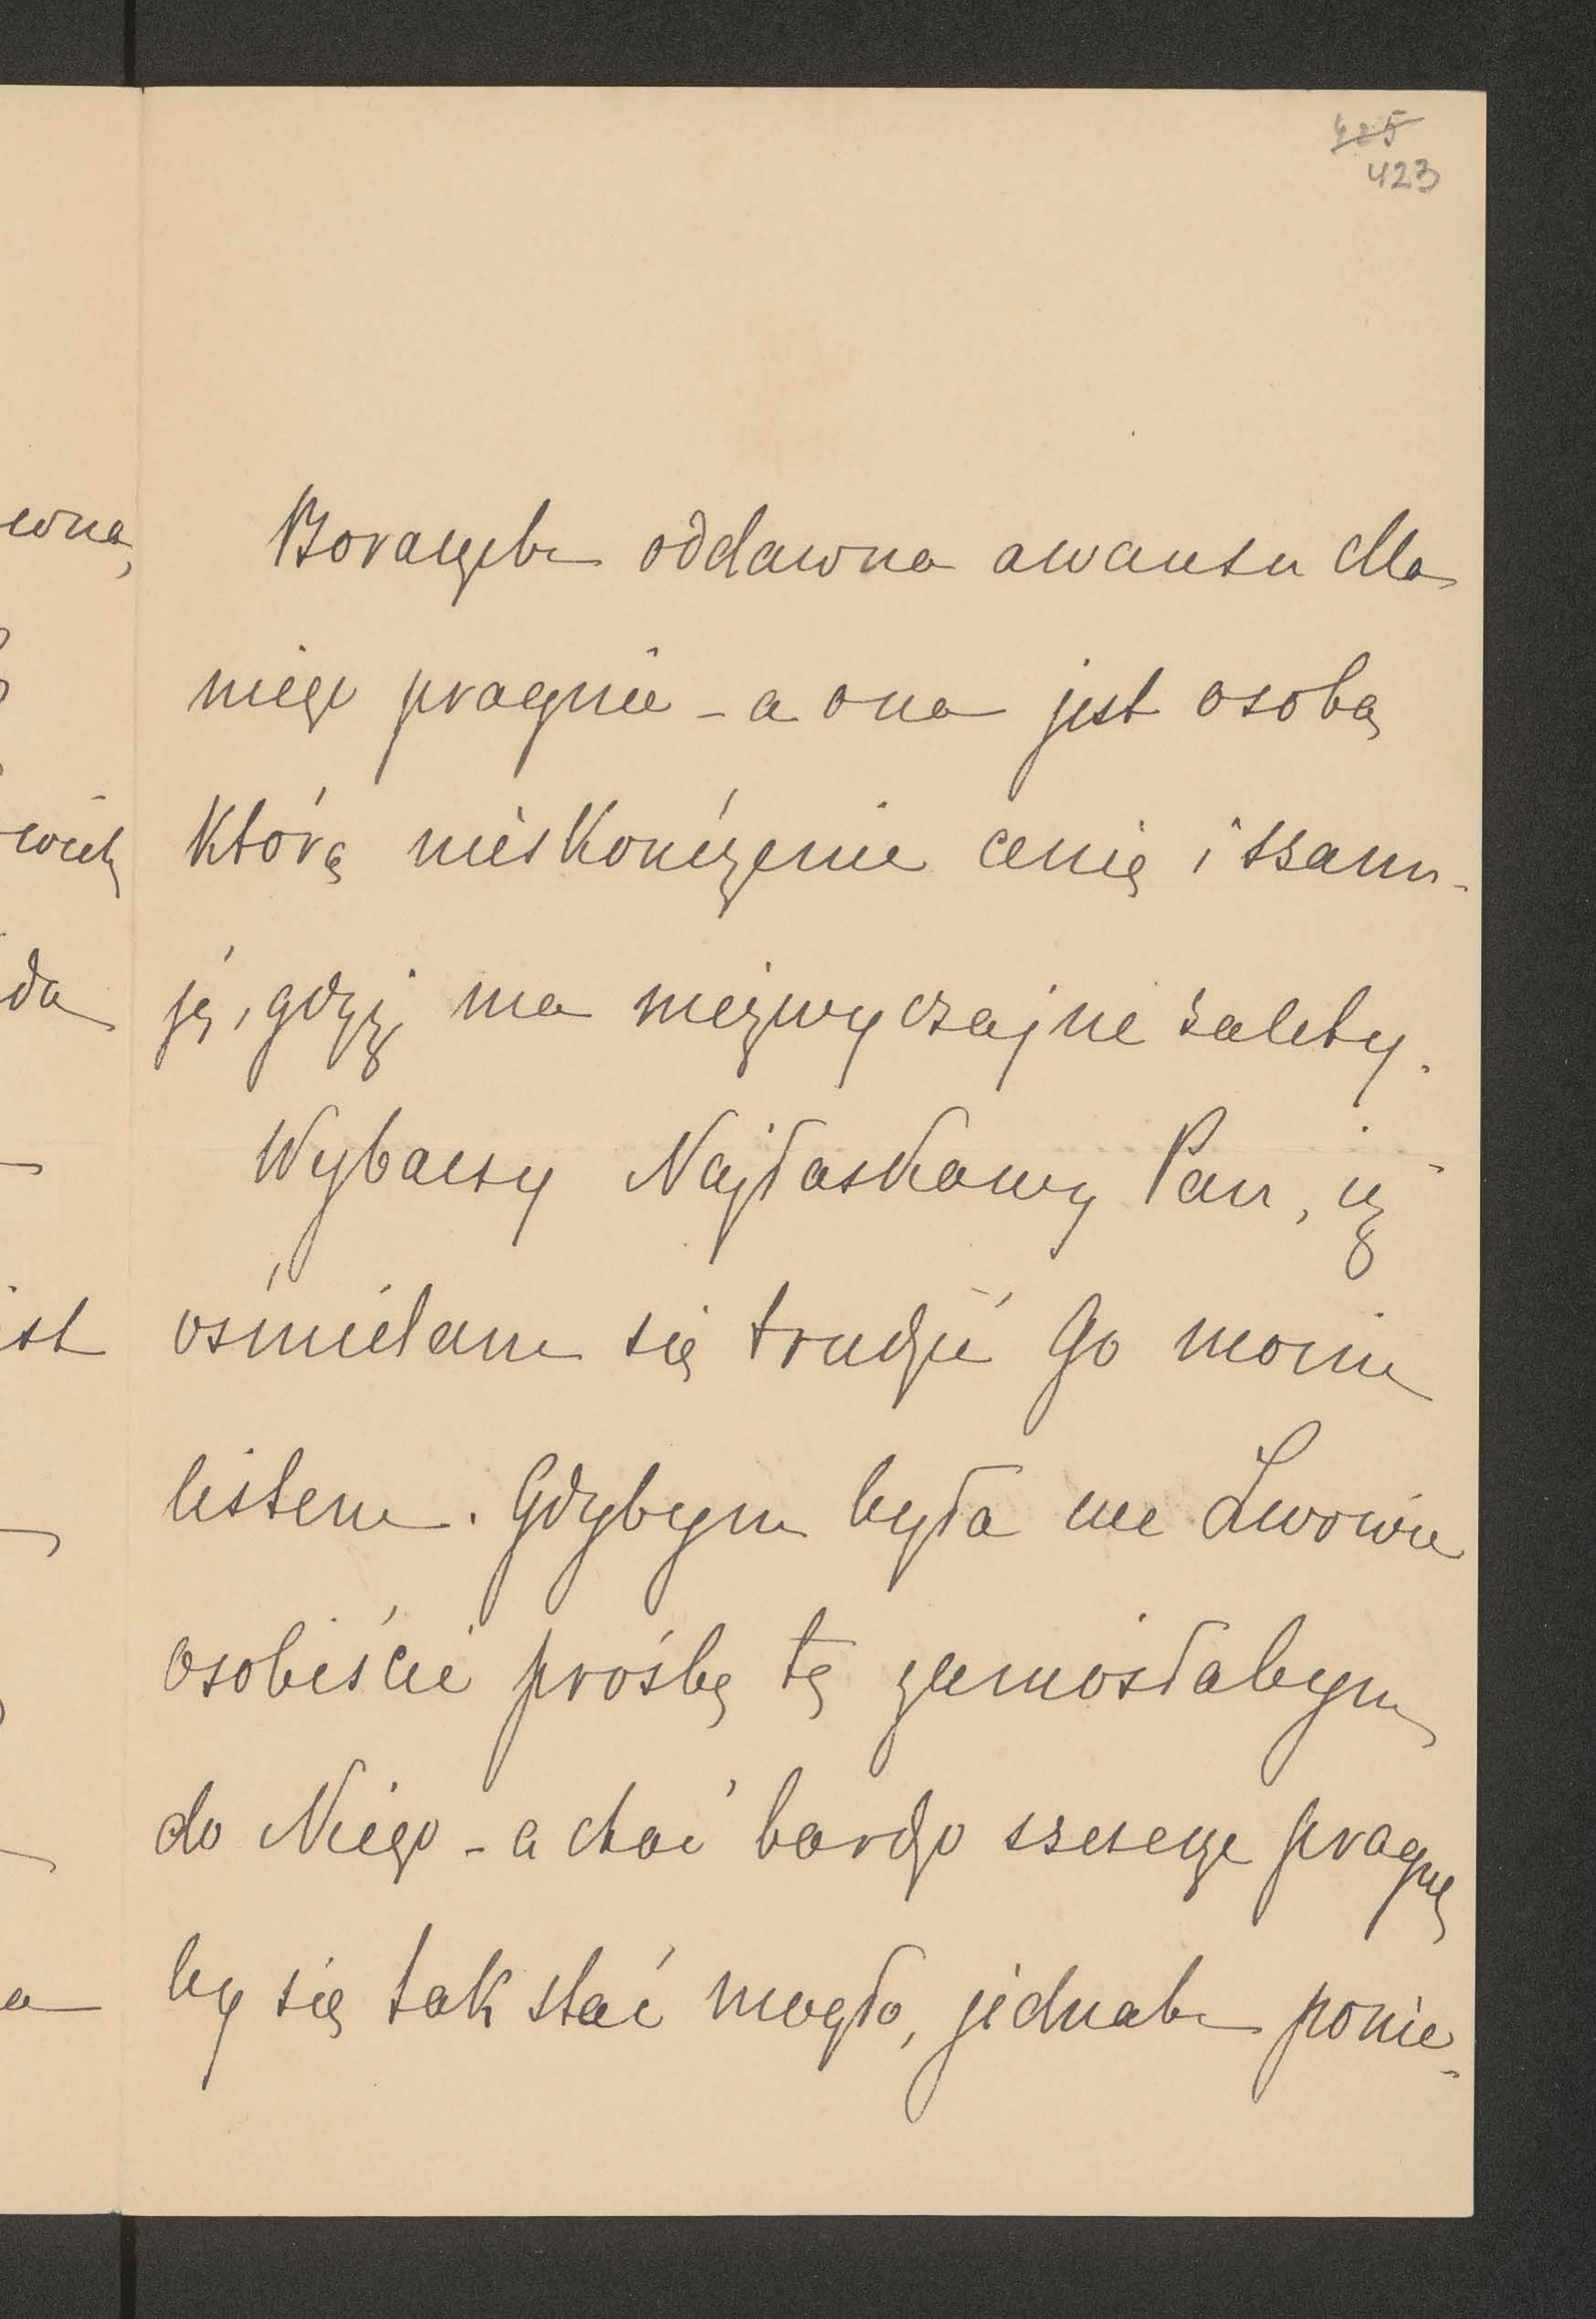 425
423
Borączek oddawna awansu dla
niego pragnie - a ona jest osobą
którą nieskończenie cenię i szanu-
ję, gdyż ma niezwyczajne zalety.
Wybaczy Najłaskawszy Pan, iż
ośmielam się trudzić Go moim
listem. Gdybym była we Lwowie
osobiście prośbę tę zaniosłabym
do Niego - a choć bardzo szczerze pragnę
by się tak stać mogło, jednak ponie-